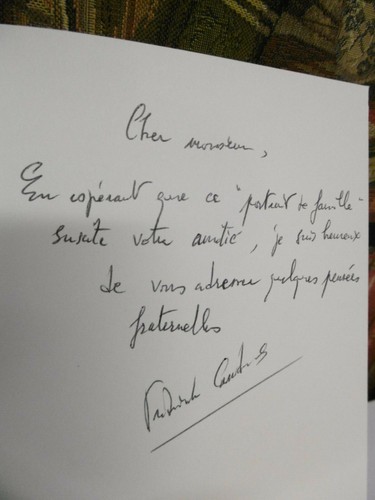 Cher monsieur,
En espérant que ce "portrait de famille"
suscite votre amitié, je suis heureux
de vous adresser quelques pensées
fraternelles